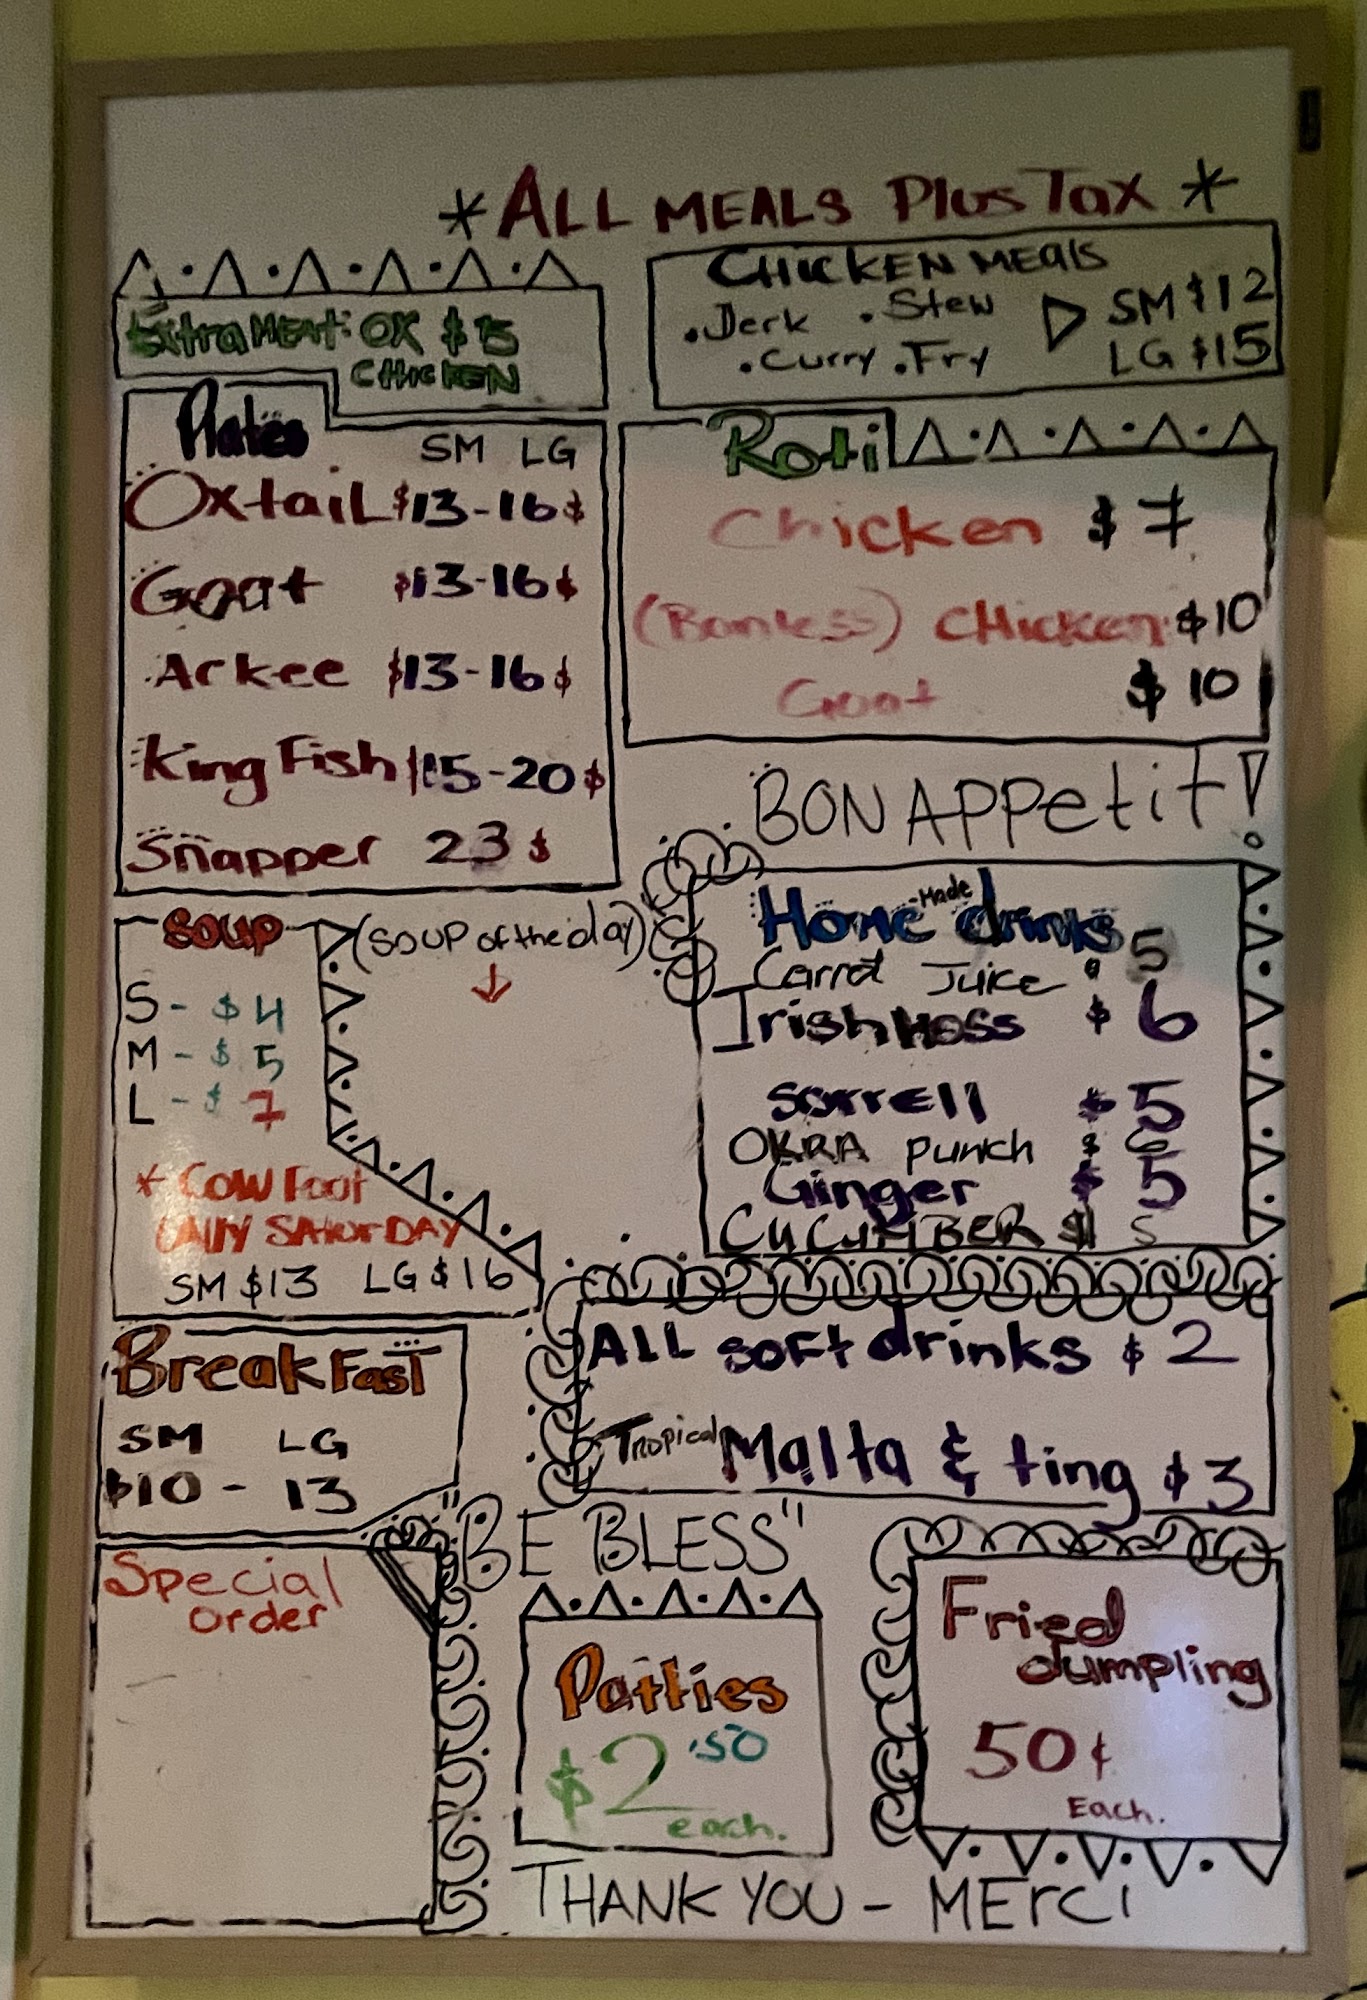 *ALL MEALS PlusTax*
Extra MEAt: OX $5
CHICKEN
CHICKEN MEALS
.Jerk .Stew SM $12
.Curry .Fry LG $15
Plates
SM LG
OxtaiL $13-16$
Goat $13-16$
Arkee $13-16$
King Fish 15-20$
Snapper 23$
Roti
Chicken $7
(Bonless) CHicken $10
Goat $10
BON APPetit!
SOUP
(SOUP of the day)
S - $4
M - $5
L - $7
* COW Foot
ONLY SATURDAY
SM $13 LG $16
Home-Made drinks
Carrot Juice $ 5
Irish Moss $ 6
sorrell $ 5
OKRA punch $ 6
Ginger $ 5
CUCUMBER $ 5
ALL soft drinks $ 2
Tropical Malta & ting $3
BreakFast
SM LG
$10 - 13
"BE BLESS"
Special
order
Patties
$2.50
each.
Fried
dumpling
50¢
Each.
THANK YOU - MErCi